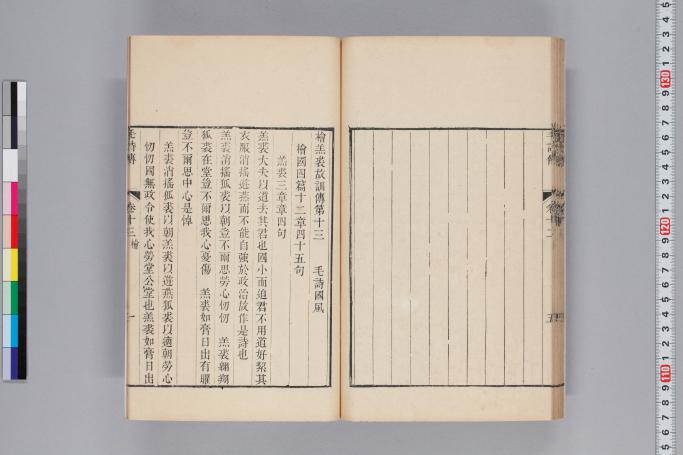 毛詩傳 卷十二 五
檜羔裘故訓傳第十三 毛詩國風
檜國四篇十二章四十五句
羔裘三章章四句
羔裘大夫以道去其君也國小而迫君不用道好絜其
衣服消搖遊燕而不能自強於政治故作是詩也
羔裘消搖狐裘以朝豈不爾思勞心忉忉 羔裘翱翔
狐裘在堂豈不爾思我心憂傷 羔裘如膏日出有曜
豈不爾思中心是悼
羔裘消搖狐裘以朝羔裘以遊燕狐裘以適朝勞心
忉忉國無政令使我心勞堂公堂也羔裘如膏日出
毛詩傳 卷十三 檜 一